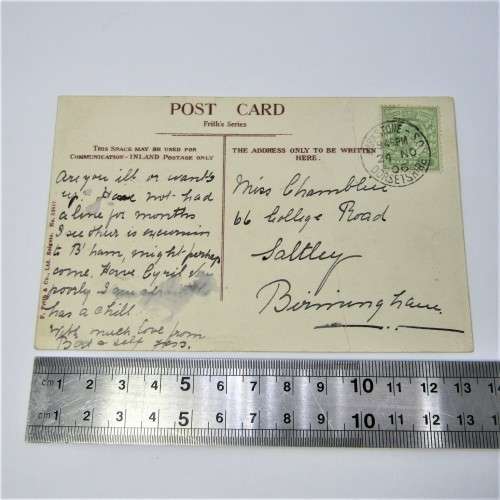 POST CARD
Frith's Series
THIS SPACE MAY BE USED FOR
COMMUNICATION - INLAND POSTAGE ONLY
THE ADDRESS ONLY TO BE WRITTEN
HERE.
Are you ill or want's
up? Have not had
a line for months
I see their is excursion
to B'ham, might perhaps
come. Have Cyril
poorly I am
has a chill.
With much love from
self
Miss
66 College Road
Saltley
Birmingham
F. Frith & Co., Ltd. Reigate. No.
S.O.
45 PM
DORSETSHIRE
cm 1 2 3 4 5 6 7 8 9 10 11 12 13 14
cm 1 2 3 4 5 6 7 8 9 10 11 12 13